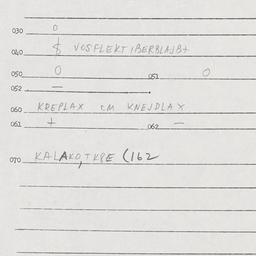 030 0
040 $ VOSFLEKT IBERBLAJBT
050 0 051 0
052 —
060 KREPLAX CM KNEJDLAX
061 + 062 —
070 KALAKO,TKPE (162